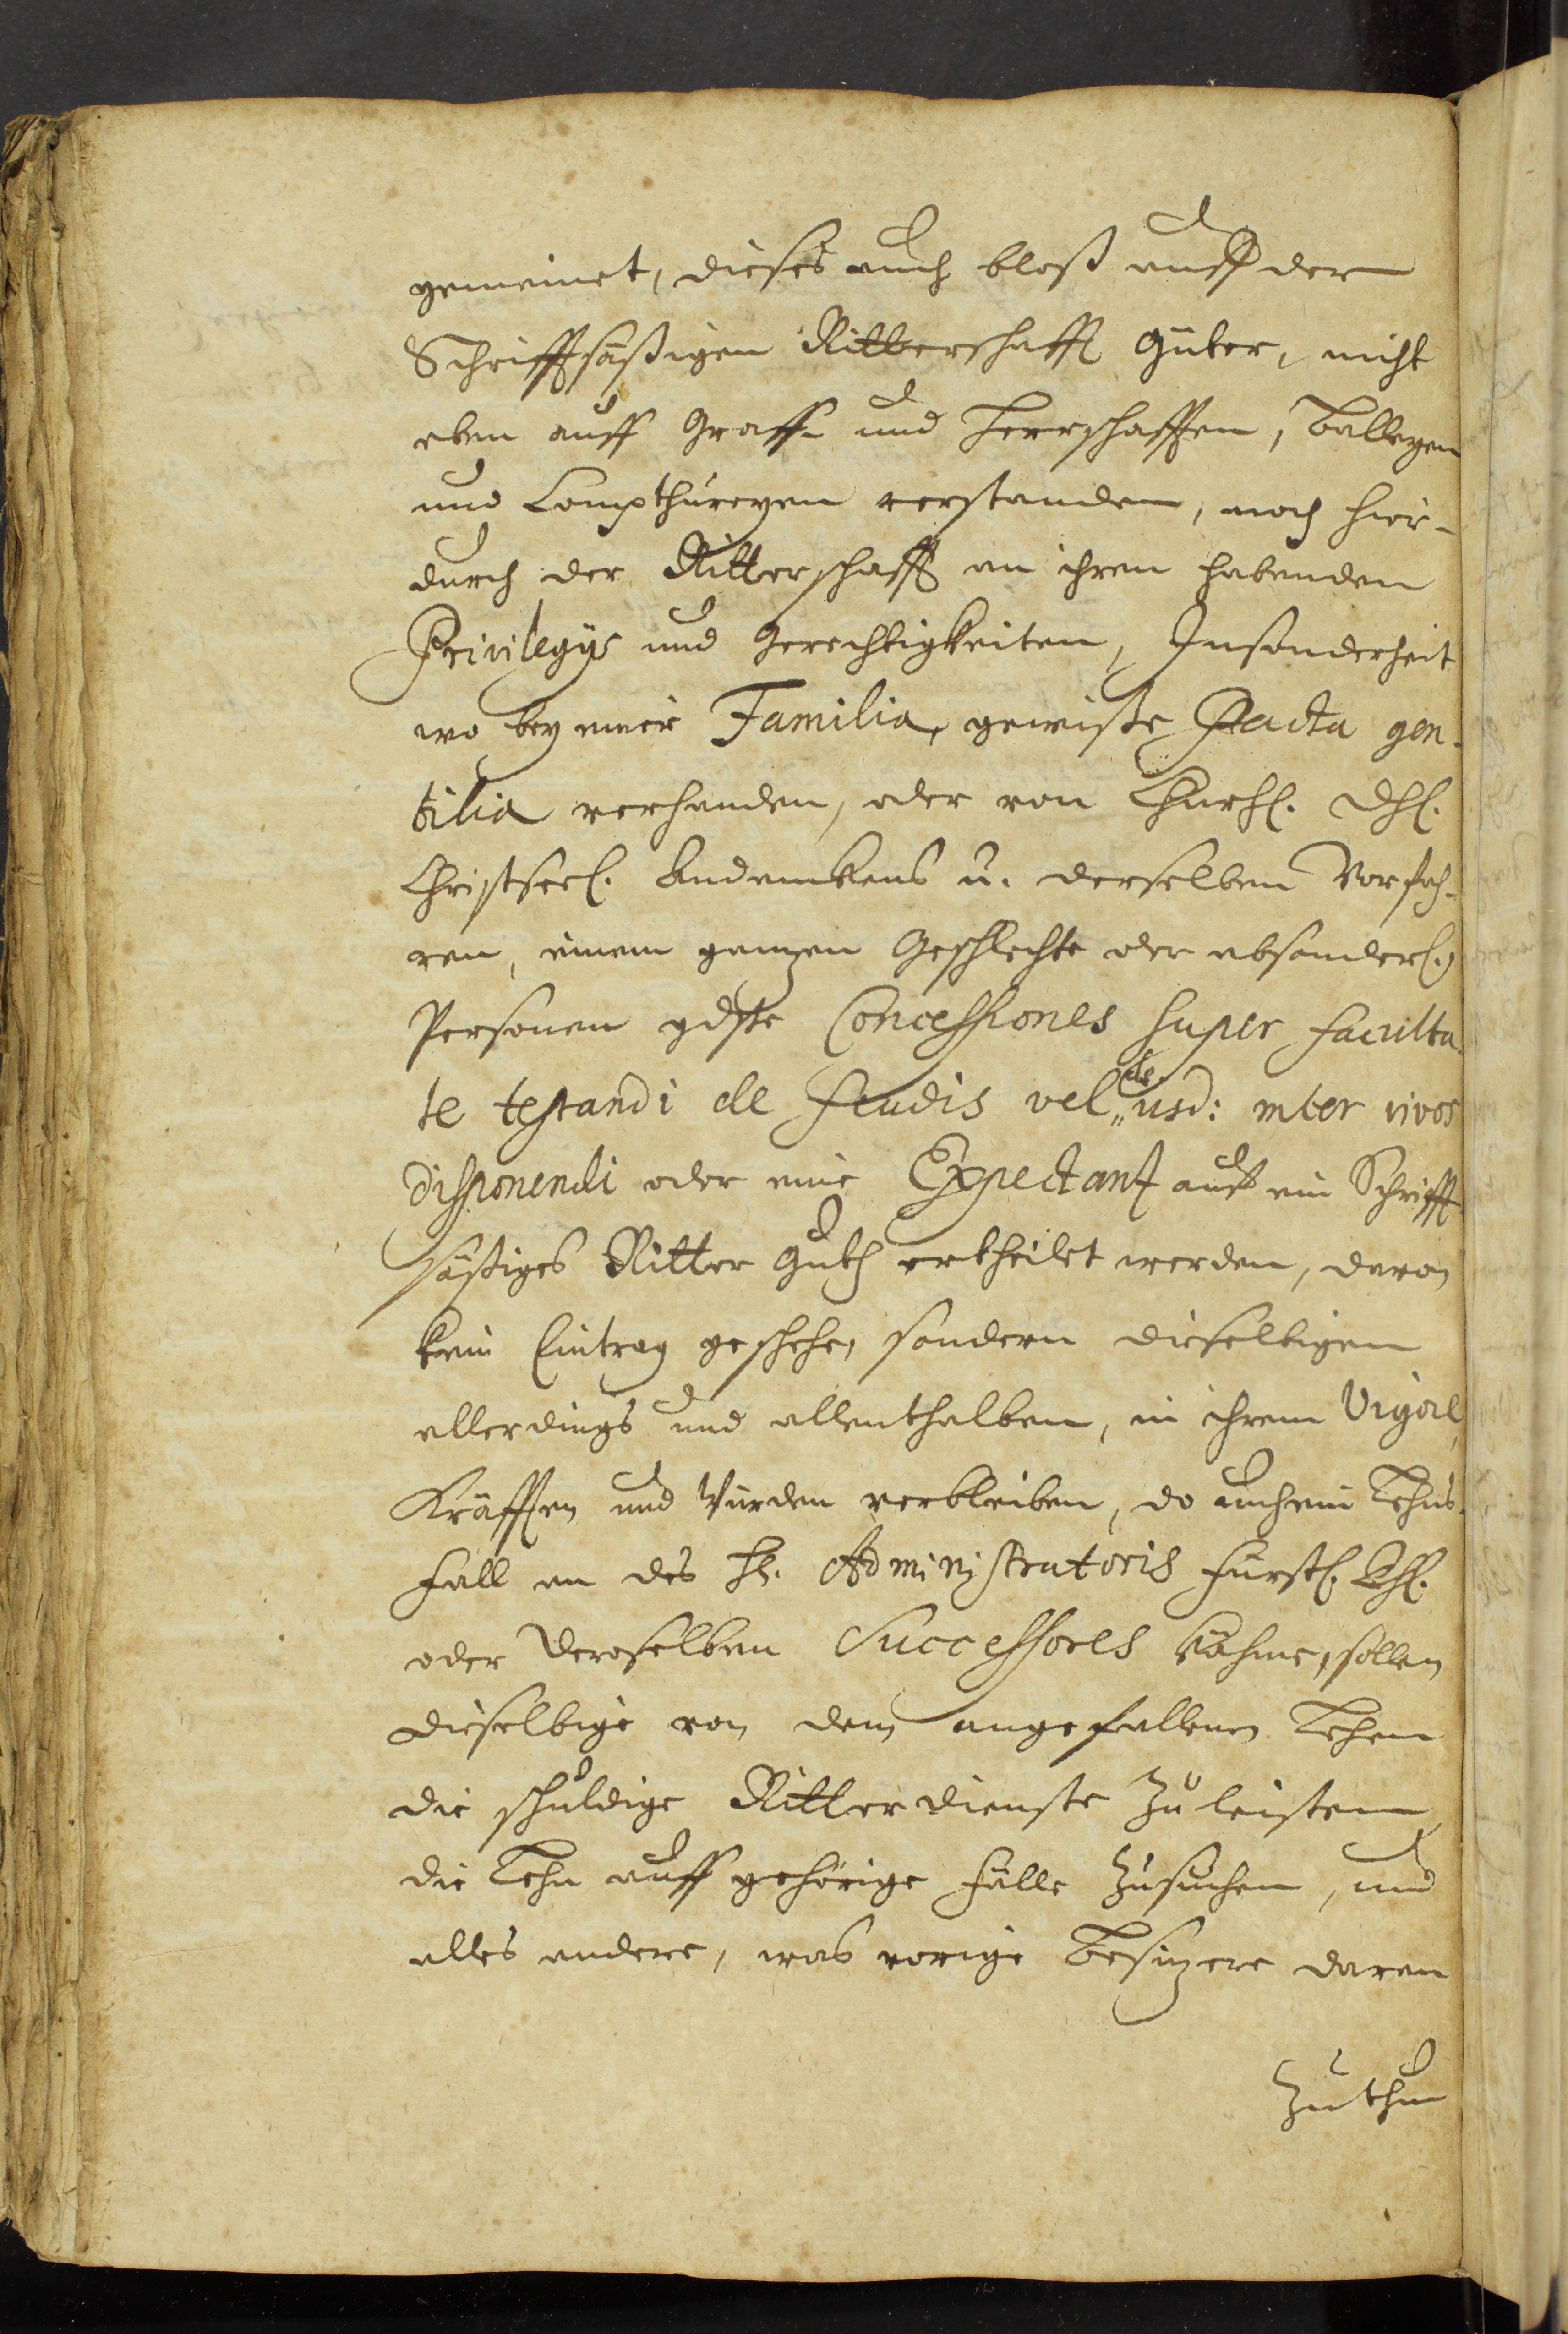 gemeinet, dieses auch bloß auff der
Schrifftsäßigen Ritterschafft Güter, nicht
eben auff Graff- und Herrschafften, Balleyen
und Compthureyen verstanden, noch hier-
durch der Ritterschafft an ihren habenden
Privilegÿs und Gerechtigkeiten, Insonderheit
wo bey einer Familia, gewiße Pacta gen-
tilia verhanden, oder von Churfl. Dhl.
Christseel. Andenckens u. derselben Vorfah-
ren, einem ganzen Geschlechte oder absonderl.
Personen gdste Concessiones super faculta-
te testandi de feudis vel de usd: inter vivos
disponendi oder eine Expectanz auff ein Schrifft
säßiges Ritter Guth ertheilet werden, daran
kein Eintrag geschehe, sondern dieselbigen
allerdings und allenthalben, in ihrem Vigor,
Kräfften und Würden verbleiben, do auch ein Lehns-
fall an des H. Administratoris Fürstl. Dhl.
oder Deroselben Successores kähme, sollen
dieselbige von dem angefallenen Lehen
die schuldige Ritterdienste zu leisten,
die Lehn auff gehörige Fälle zusuchen, und
alles andere, was vorige Besizere daran
zuthun